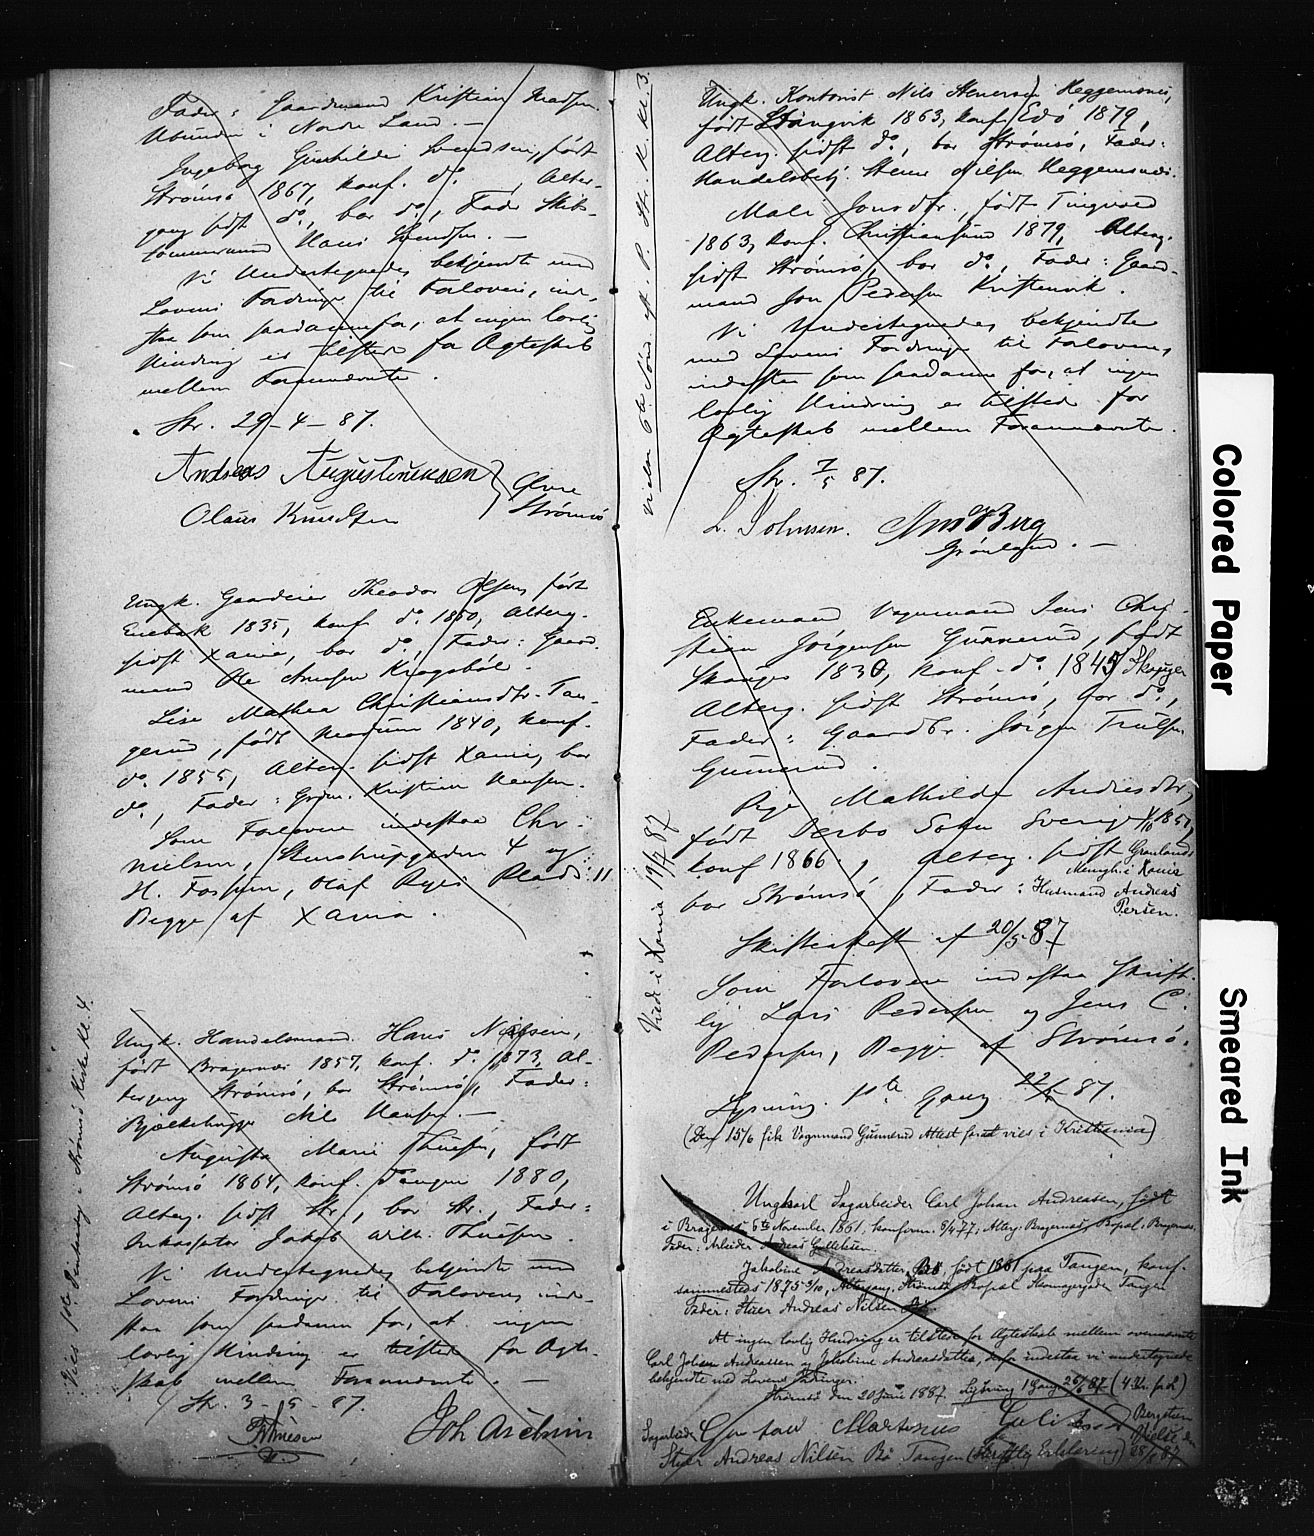 Fader: Gaardmand Kristian Madsen
i Nordre Land. —
Ingeborg Gunhilde Svendsen, født
Strømsø 1867, konf. do, Alter-
gang sidst do, bor do, Fader Skibs-
tømmermand Hans Svendsen. —
Vi Undertegnede, bekjendte med
Lovens Fordringer til Forlovere, ind-
staa som saadanne for, at ingen lovlig
Hindring er tilstede for Ægteskab
mellem Fornævnte.
Str. 29-4-87.
Andreas Augustinussen
Olaus Knudsen
Øvre
Strømsø
Ungk. Gaardeier Theodor Olsen, født
Enebak 1835, konf. do. 1850, Alterg.
sidst Xania, bor do, Fader: Gaard-
mand Ole Arnesen
Lise Mathea Christiansdtr. Tan-
gerud, født 1840, konf.
do. 1855, Alterg. sidst Xania, bor
do, Fader: Grdm. Kristian Hansen.
Som Forlovere indestaa Chr.
Nielsen, 4 og
H. Olaf Ryes Plads 11
Begge af Xania.
Vies 1ste Pindsedag i Strømsø Kirke Kl. 4.
Ungk. Handelsmand Hans Nilsen,
født Bragernæs 1857, konf. do. 1873, Al-
tergang Strømsø, bor Strømsø, Fader:
Bjælkehugger Nils Hansen. —
Augusta Marie Thuesen, født
Strømsø 1864, konf. Tangen 1880,
Alterg. sidst Str., bor Str., Fader:
Inkassator Jakob Wilh. Thuesen.
Vi Undertegnede, bekjendte med
Lovens Fordringer til Forlovere, inde-
staa som saadanne for, at ingen
lovlig Hindring er tilstede for Ægte-
skab mellem Fornævnte. —
Str. 3-5-87.
Thuesen
Joh.
Vielse 6te Juni Str. K. Kl. 3.
Ungk. Kontorist Nils Heggemsnes,
født Stangvik 1863, konf. Edø 1879,
Alterg. sidst do, bor Strømsø, Fader:
Handelsbetj. Nilsen Heggemsnes.
Mali Jonsdtr., født Tingvold
1863, konf. Christiansund 1879, Alterg.
sidst Strømsø, bor do, Fader: Gaard-
mand Jon Pedersen
Vi Undertegnede, bekjendte
med Lovens Fordringer til Forlovere,
indestaa som saadanne for, at ingen
lovlig Hindring er tilstede for
Ægteskab mellem Fornævnte.
Str. 7/5 87.
L. Johnsen. Berg
Grønland. —
Viede i Xania 19/6 87
Enkemand Vognmand Jens Chri-
stian Jörgensen Gunnerud, født
Skouger 1830, konf. do. 1845 Skouger
Alterg. sidst Strømsø, bor do,
Fader: Gaardbr. Jörgen Trulsen
Gunnerud.
Pige Mathilde Andriesdtr,
født Sokn Sverige 1/10 1851,
konf 1866, Alterg. sidst Grønlands
Menigh. i Xania
bor Strømsø, Fader: Husmand Andreas
Persen.
Skifteattest af 20/5 87
Som Forlovere indestaa skrift-
lig Lars Pedersen og Jens C.
Pedersen, Begge af Strømsø.
Lysning 1ste Gang 22/5 87.
(Den 15/6 fik Vognmand Gunnerud Attest forat vies i Kristiania)
Ungkarl Sagarbeider Carl Johan Andreassen, født
i Bragernæs 6te November 1861. konform. 8/4 77, Alterg. Bragernæs, Bopæl: Bragernæs,
Fader: Arbeider Andreas Gullichsen.
Jakobine Andreasdatter Bø, født 1861 paa Tangen, konf.
sammesteds 1875 3/10, Altergang. Strømsø Bopæl Tangen
Fader: Stuer Andreas Nilsen Bø.
At ingen lovlig Hindring er tilstede for Ægteskab mellem ovennævnte
Carl Johan Andreassen og Jakobine Andreasdatter, derfor indestaa vi undertegnede
bekjendte med Lovens Fordringer.
Strømsø den 20 Juni 1887. Lysning 1 Gang 26/6 87 (4 Kr. bet)
Sagarbeider Gustav Martinius Bergsteen
Stuer Andreas Nilsen Bø Tangen (Skriftlig Erklæring) 28/6 87
Colored Paper
Smeared Ink